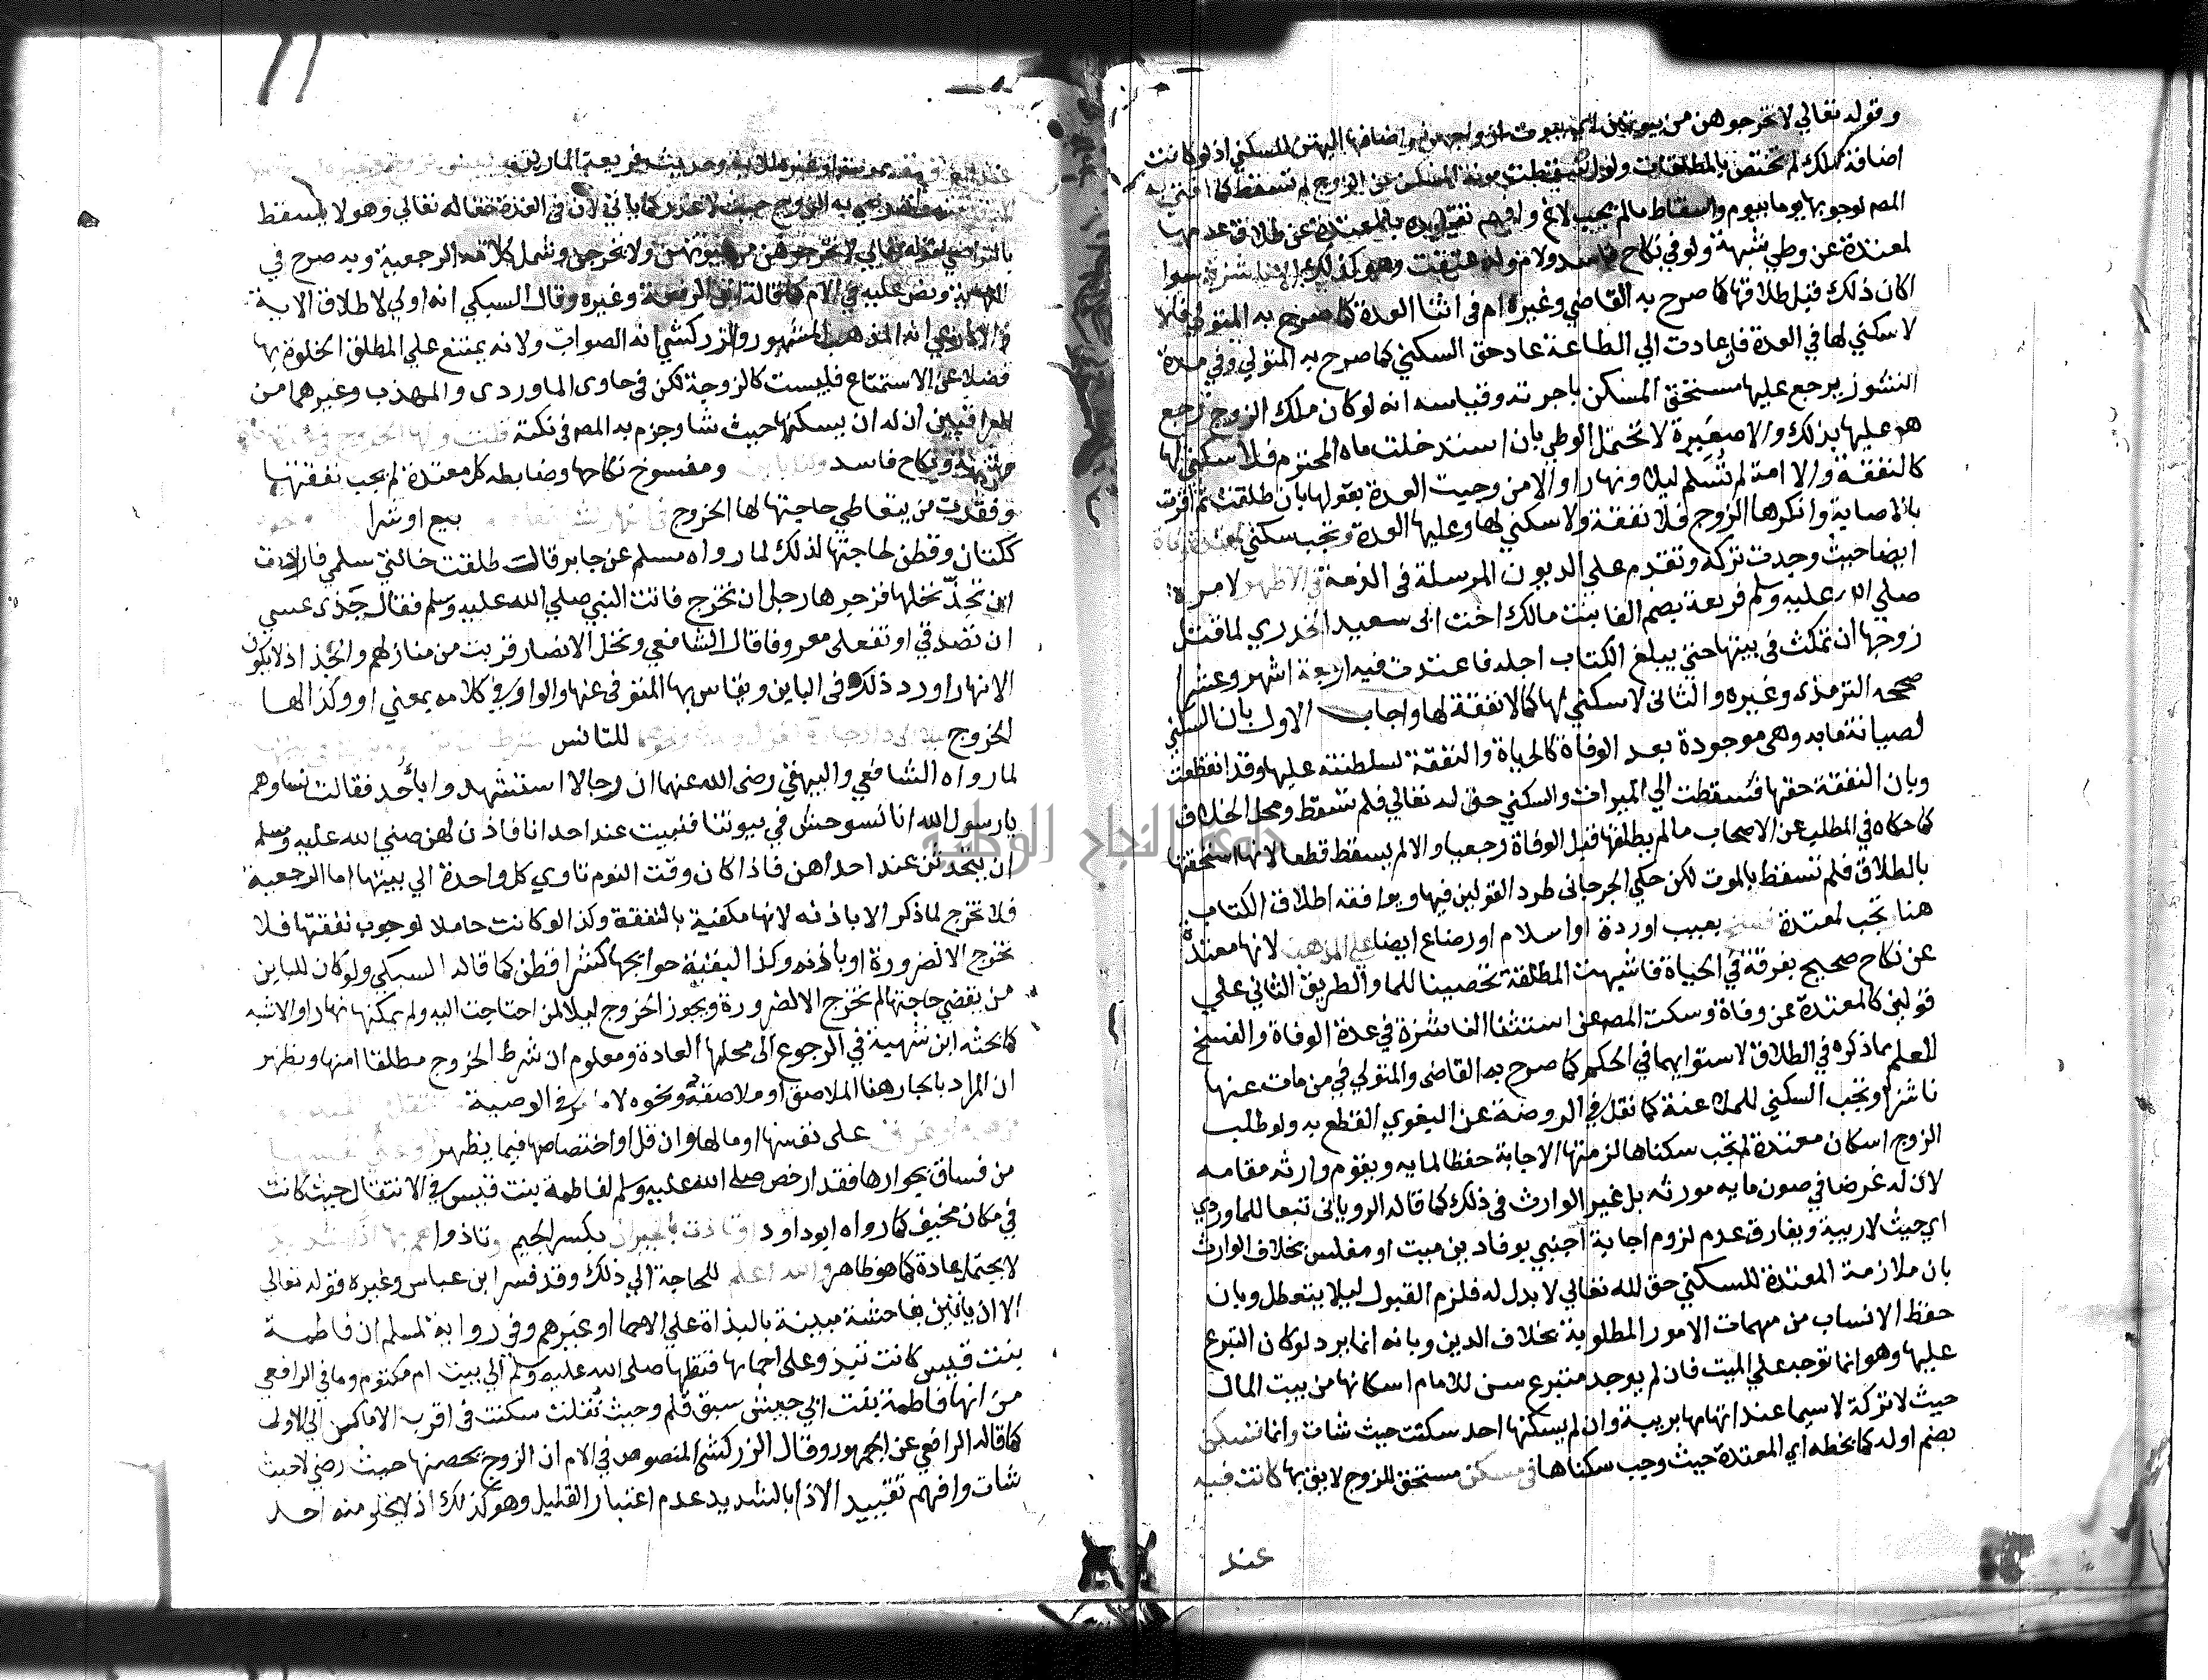 وقوله تعالي لا تخرجوهن من بيوتهن اي بيوت ازواجهن واضافها اليهن للسكني اذ لو كانت
اضافة ملك لم تختص بالمطلقات ولو اسقطت مونة المسكن عن الزوج لم تسقط كما افتي به
المصه لوجوبها يوما بيوم واسقاط ما لم يجب لاغ وافهم تقييده بالمعتدة عن طلاق عدمها
لمعتدة عن وطي شبهة ولو في نكاح فاسد ولام ولد عتقت وهو كذلك الا ناشزة سوا
اكان ذلك قبل طلاقها كما صرح به القاضي وغيره ام في اثنا العدة كما صرح به المتولي فلا
لا سكني لها في العدة فان عادت الي الطاعة عاد حق السكني كما صرح به المتولي وفي مدة
النشوز يرجع عليها مستحق المسكن باجرته وقياسه انه لو كان ملك الزوج رجع
هو عليها بذلك والا صغيرة لا تحتمل الوطي بان استدخلت ماه المحترم فلا سكني لها
كالنفقة والا امة لم تسلم ليلا ونهارا والا من وجبت العدة بقولها بان طلقت ثم اقرت
بالاصابة وانكرها الزوج فلا نفقة ولا سكني لها وعليها العدة وتجب سكني لمعتدة وفاة
ايضا حيث وجدت تركة وتقدم علي الديون المرسلة في الذمة في الاظهر لامره
صلي الله عليه وسلم فريعة بضم الفا بنت مالك اخت ابي سعيد الخدري لما قتل
زوجها ان تمكث في بيتها حتي يبلغ الكتاب اجله فاعتدت فيه اربعة اشهر وعشرا
صححه الترمذي وغيره والثاني لا سكني لها كما لا نفقة لها واجاب الاول بان السكني
لصيانة مايه وهي موجودة بعد الوفاة كالحياة والنفقة لسلطنته عليها وقد انقطعت
وبان النفقة حقها فسقطت الي الميراث والسكني حق لله تعالي فلم تسقط ومحل الخلاف
كما حكاه في المطلب عن الاصحاب ما لم يطلقها قبل الوفاة رجعيا والا لم يسقط قطعا لانها استحقتها
بالطلاق فلم تسقط بالموت لكن حكي الجرجاني طرد القولين فيها ويوافقه اطلاق الكتاب
هنا وتجب لمعتدة فسخ بعيب او ردة او اسلام او رضاع ايضا علي المذهب لانها معتدة
عن نكاح صحيح بفرقة في الحياة فاشبهت المطلقة تحصينا للما والطريق الثاني علي
قولين كالمعتدة عن وفاة وسكت المصه عن استثنا الناشزة في عدة الوفاة والفسخ
للعلم بما ذكره في الطلاق لاستوايهما في الحكم كما صرح به القاضي والمتولي في من مات عنها
ناشزا وتجب السكني للملاعنة كما نقل في الروضة عن البغوي القطع به ولو طلب
الزوج اسكان معتدة لم تجب سكناها لزمتها الاجابة حفظا لمايه ويقوم وارثه مقامه
لان له غرضا في صون مايه مورثه بل غير الوارث في ذلك كما قاله الروياني تبعا للماوردي
اي حيث لا ريبة ويفارق عدم لزوم اجابة اجنبي بوفا دين ميت او مفلس بخلاف الوارث
بان ملازمة المعتدة للسكني حق لله تعالي لا بدل له فلزم القبول ليلا يتعطل وبان
حفظ الانساب من مهمات الامور المطلوبة بخلاف الدين وبانه انما يرد لو كان التبرع
عليها وهو انما توجه علي الميت فان لم يوجد متبرع سن للامام اسكانها من بيت المال
حيث لا تركة لا سيما عند اتهامها بريبة وان لم يسكنها احد سكنت حيث شات وانما تسكن
بضم اوله كما بخطه اي المعتدة حيث وجب سكناها في مسكن مستحق للزوج لايق بها كانت فيه
عند
وحديث فريعة المار
به الزوج حيث لا عذر كما ياتي لان في العدة حقا له تعالي وهو لا يسقط
بالتراضي لقوله تعالي لا تخرجوهن من بيوتهن ولا يخرجن وشمل كلامه الرجعية وبه صرح في
النهاية ونص عليه في الام كما قاله ابن الرفعة وغيره وقال السبكي انه اولي لاطلاق الاية
والاذرعي انه المذهب المشهور والزركشي انه الصواب ولانه يمتنع علي المطلق الخلوة بها
فضلا عن الاستمتاع فليست كالزوجة لكن في حاوي الماوردي والمهذب وغيرهما من
العراقيين ان له ان يسكنها حيث شا وجزم به المصه في نكته قلت ولها الخروج في
ونكاح فاسد ومفسوخ نكاحها وضابطه كل معتدة لم يجب نفقتها
وفقدت من يتعاطي حاجتها لها الخروج بيع او شرا
ككتان وقطن لحاجتها لذلك لما رواه مسلم عن جابر قالت طلقت خالتي سلمي فارادت
ان تجذ نخلها فزجرها رجل ان تخرج فاتت النبي صلي الله عليه وسلم فقال جذي عسي
ان تصدقي او تفعلي معروفا قال الشافعي ونخل الانصار قريب من منازلهم والجذاذ لا يكون
الا نهارا ورد ذلك في الباين ويقاس بها المتوفي عنها والواو في كلامه بمعني او وكذا لها
الخروج للتانس
لما رواه الشافعي والبيهقي رضي الله عنهما ان رجالا استشهدوا باحد فقالت نساوهم
يا رسول الله انا نستوحش في بيوتنا فنبيت عند احدانا فاذن لهن صلي الله عليه وسلم
ان يتحدثن عند احداهن فاذا كان وقت النوم تاوي كل واحدة الي بيتها اما الرجعية
فلا تخرج لما ذكر الا باذنه لانها مكفية بالنفقة وكذا لو كانت حاملا لوجوب نفقتها فلا
تخرج الا لضرورة او باذنه وكذا البقية حوايجها كشرا قطن كما قاله السبكي ولو كان للباين
من يقضي حاجتها لم تخرج الا لضرورة ويجوز الخروج ليلا لمن احتاجت اليه ولم يمكنها نهارا والاشبه
كما بحثه ابن شهبة في الرجوع الي محلها العادة ومعلوم ان شرط الخروج مطلقا امنها ويظهر
ان المراد بالجار هنا الملاصق او ملاصقه ونحوه لا ما مر في الوصية
علي نفسها او مالها وان قل او اختصاصها فيما يظهر
من فساق بجوارها فقد ارخص صلي الله عليه وسلم لفاطمة بنت قيس في الانتقال حيث كانت
في مكان مخيف كما رواه ابو داود او تاذت بالجيران بكسر الجيم
لا يحتمل عادة كما هو ظاهر والله اعلم للحاجة الي ذلك وقد فسر ابن عباس وغيره قوله تعالي
الا ان ياتين بفاحشة مبينة بالبذاة علي الاحما او غيرهم وفي رواية لمسلم ان فاطمة
بنت قيس كانت تبذو علي احمايها فنقلها صلي الله عليه وسلم الي بيت ام مكتوم وما في الرافعي
من انها فاطمة بنت ابي حبيش سبق قلم وحيث نقلت سكنت في اقرب الاماكن الي الاول
كما قاله الرافعي عن الجمهور وقال الزركشي المنصوص في الام ان الزوج يحصنها حيث رضي لا حيث
شات وافهم تقييد الاذا بالشديد عدم اعتبار القليل وهو كذلك اذ لا يخلو منه احد
جامعة النجاح الوطنية